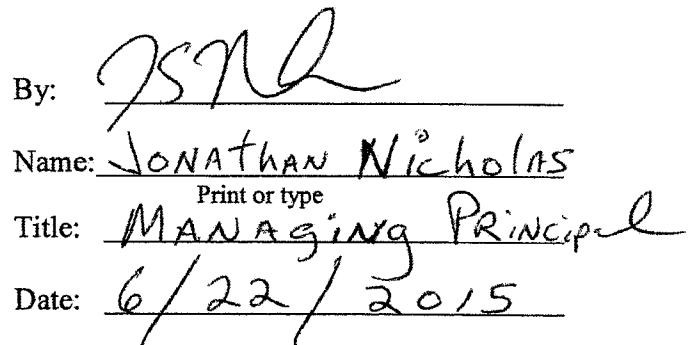 By:
Name: Jonathan Nicholas
Print or type
Title: Managing Principal
Date: 6/22/2015